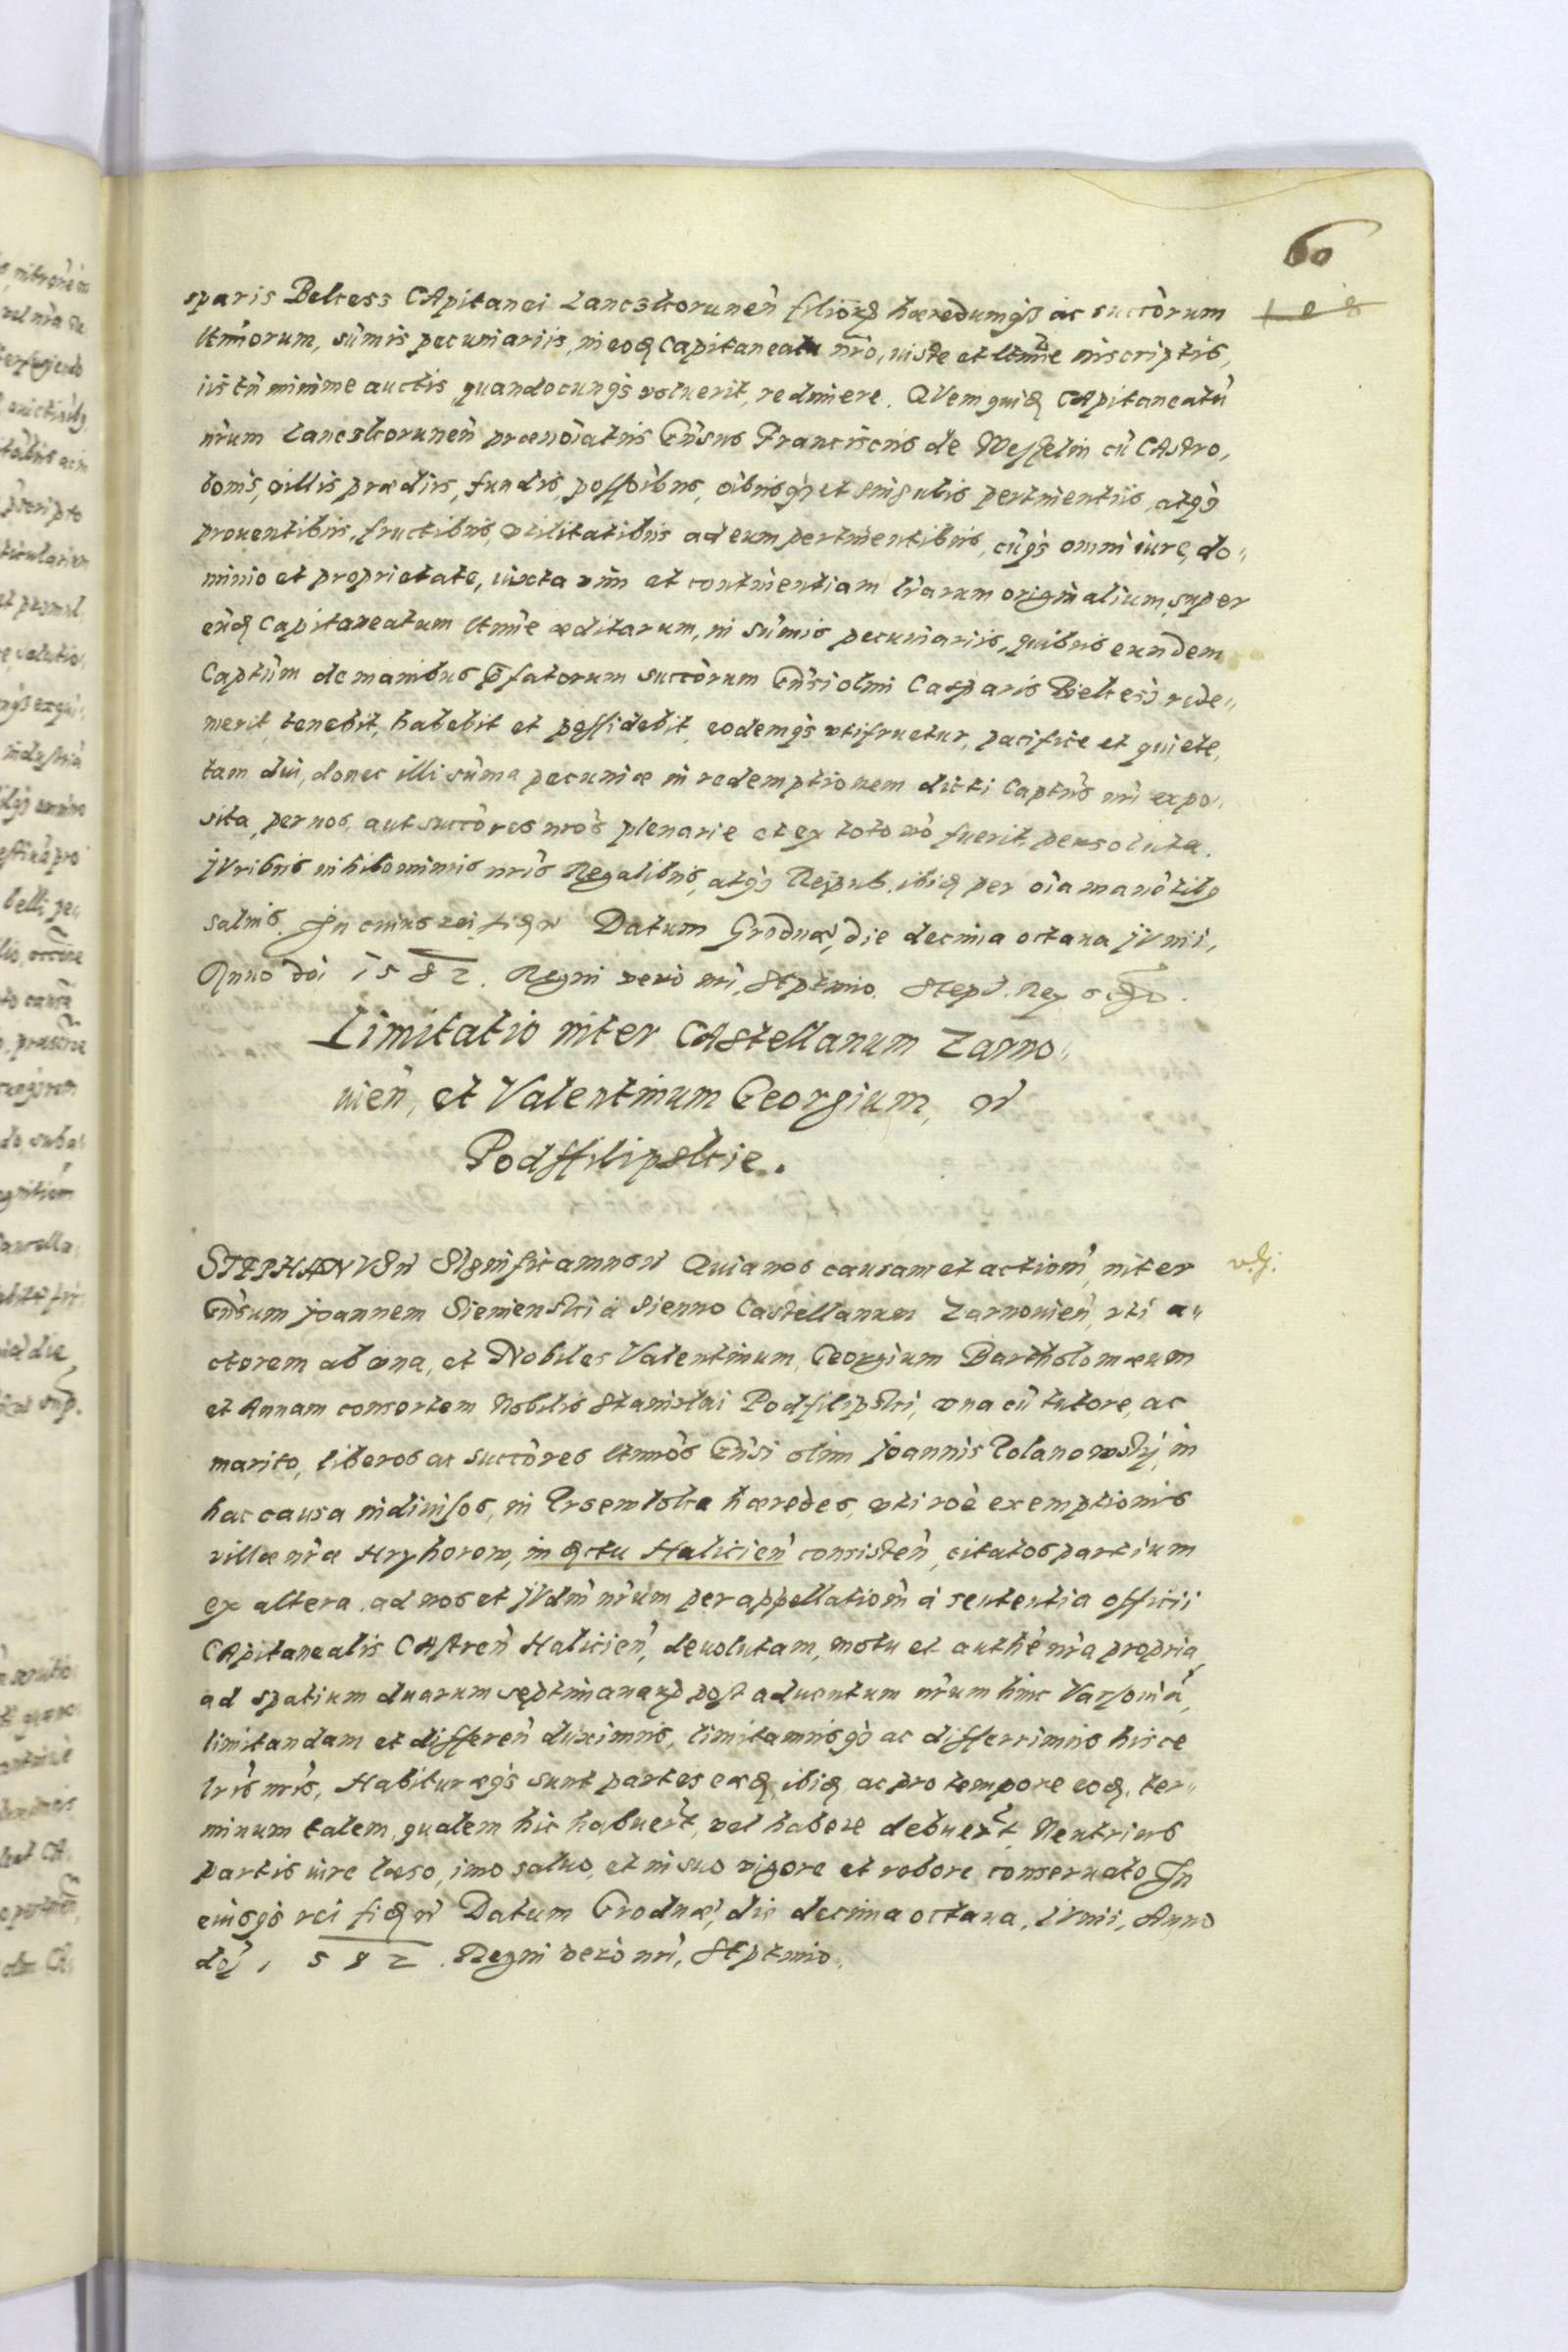 60
sparis Bekess CApitanei Lanczkorunen̄ filiorūq hæredumq́ꝫ ac succōrum
ltm̄orum, sūmis pecuniariis, in eoq Capitaneatu nr̄o, iuste et ltm̄e inscriptis,
iis tn̄ minime auctis, quandocunq́ꝫ voluerit, redimere. QVemquiq CApitaneatū
nr̄um Lanczkorunen̄ prænoīatus Gn̄sus Franciscus de Wesselin cū CAstro,
bonis, villis prædiis, fundis, possōibus, oībusq́ꝫ et singulis pertinentiis, atq́ꝫ
prouentibus, fructibus, vtilitatibus ad eum pertinentibus, cūq́ꝫ omni iure, do„
minio et proprietate, iuxta vim et continentiam lr̄arum originalium, super
eūq Capitaneatum ltm̄e æditarum, in sūmis pecuniariis, quibus eundem
Captūm de manibus p̄fatorum succōrum Gn̄si olim Casparis Biekess rede„
merit, tenebit, habebit et possidebit, eodemq́ꝫ vtifruetur, pacifice et quiete,
tam diu, donec illi sūma pecuniæ in redemptionem dicti Captūs nr̄i expo„
sita, per nos, aut succōres nr̄os plenarie et ex toto nō fuerit persoluta.
JVribus nihilominus nr̄is Regalibus, atq́ꝫ Reipub. ibiq per oīa manētibꝫ
saluis. Jn cuius rei fiq etc Datum Grodnæ, die decima octaua JVnii,
Anno dn̄i 1582. Regni vero nr̄i, Septimo. Steph. Rex
Limitatio inter CAstellanum Zarno„
uien̄, et Valentinum Georgium, etc
Podffilipskie.
STEPHANVS etc Significamus etc Quia nos causam et actiōm̄, inter
Gn̄sum Joannem Siemienski à Sienno Castellanum Zarnouien̄, vti a„
ctorem ab vna, et Nobiles Valentinum, Georgium Bartholomæum
et Annam consortem Nobilis Stanislai Podfilipski, vna cū tutore, ac
marito, liberos ac succōres ltm̄os Gn̄si olim Joannis Polanowskij, in
hac causa indiuisos, in hæredes, vti rōe exemptionis
villæ nr̄æ Hryhorow, in qctu Halicien̄ consisten̄, citatos partium
ex altera, ad nos et JVdm̄ nr̄um per appellatiōm̄ à sententia officii
CApitanealis CAstren̄ Halicien̄, deuolutam, motu et authē nr̄a propria
ad spatium duarum septimanarūq post aduentum nr̄um hinc Varsouiā,
limitandam et differen̄ duximus, limitamusq́ꝫ ac differrimus hisce
lr̄is nr̄is, Habituræq́ꝫ sunt partes eæq, ibiq, ac pro tempore eoq, ter„
minum talem, qualem hic habuert, vel habere debuert Neutrius
partis iure læso, imo saluo, et in suo vigore et robore conseruato Jn
eiusq́ꝫ rei fiq etc Datum Grodnæ, die decima octaua, JVnii, Anno
dn̄i 1582. Regni vero nr̄i, Septimo.